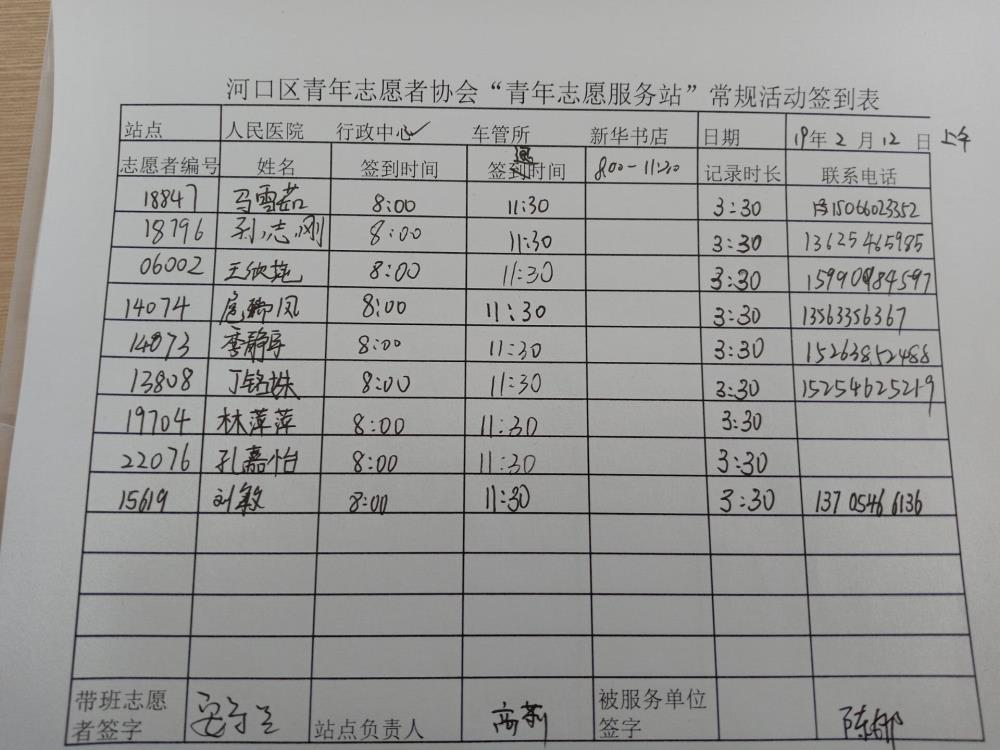 河口区青年志愿者协会“青年志愿服务站”常规活动签到表
站点 人民医院 行政中心✓ 车管所 新华书店 日期 19年2月12日 上午
志愿者编号 姓名 签到时间 签退时间 8:00-11:30 记录时长 联系电话
18847 马雪茹 8:00 11:30 3:30 15066023352
18796 孙志刚 8:00 11:30 3:30 13625465985
06002 王欣艳 8:00 11:30 3:30
14074 凤 8:00 11:30 3:30 13563356367
14073 李静 8:00 11:30 3:30 15263852488
13808 丁铭姝 8:00 11:30 3:30 15254625219
19704 林萍萍 8:00 11:30 3:30
22076 孔嘉怡 8:00 11:30 3:30
15619 刘敏 8:00 11:30 3:30 137 0546 6136
带班志愿者签字 站点负责人 高莉 被服务单位签字 陈娜